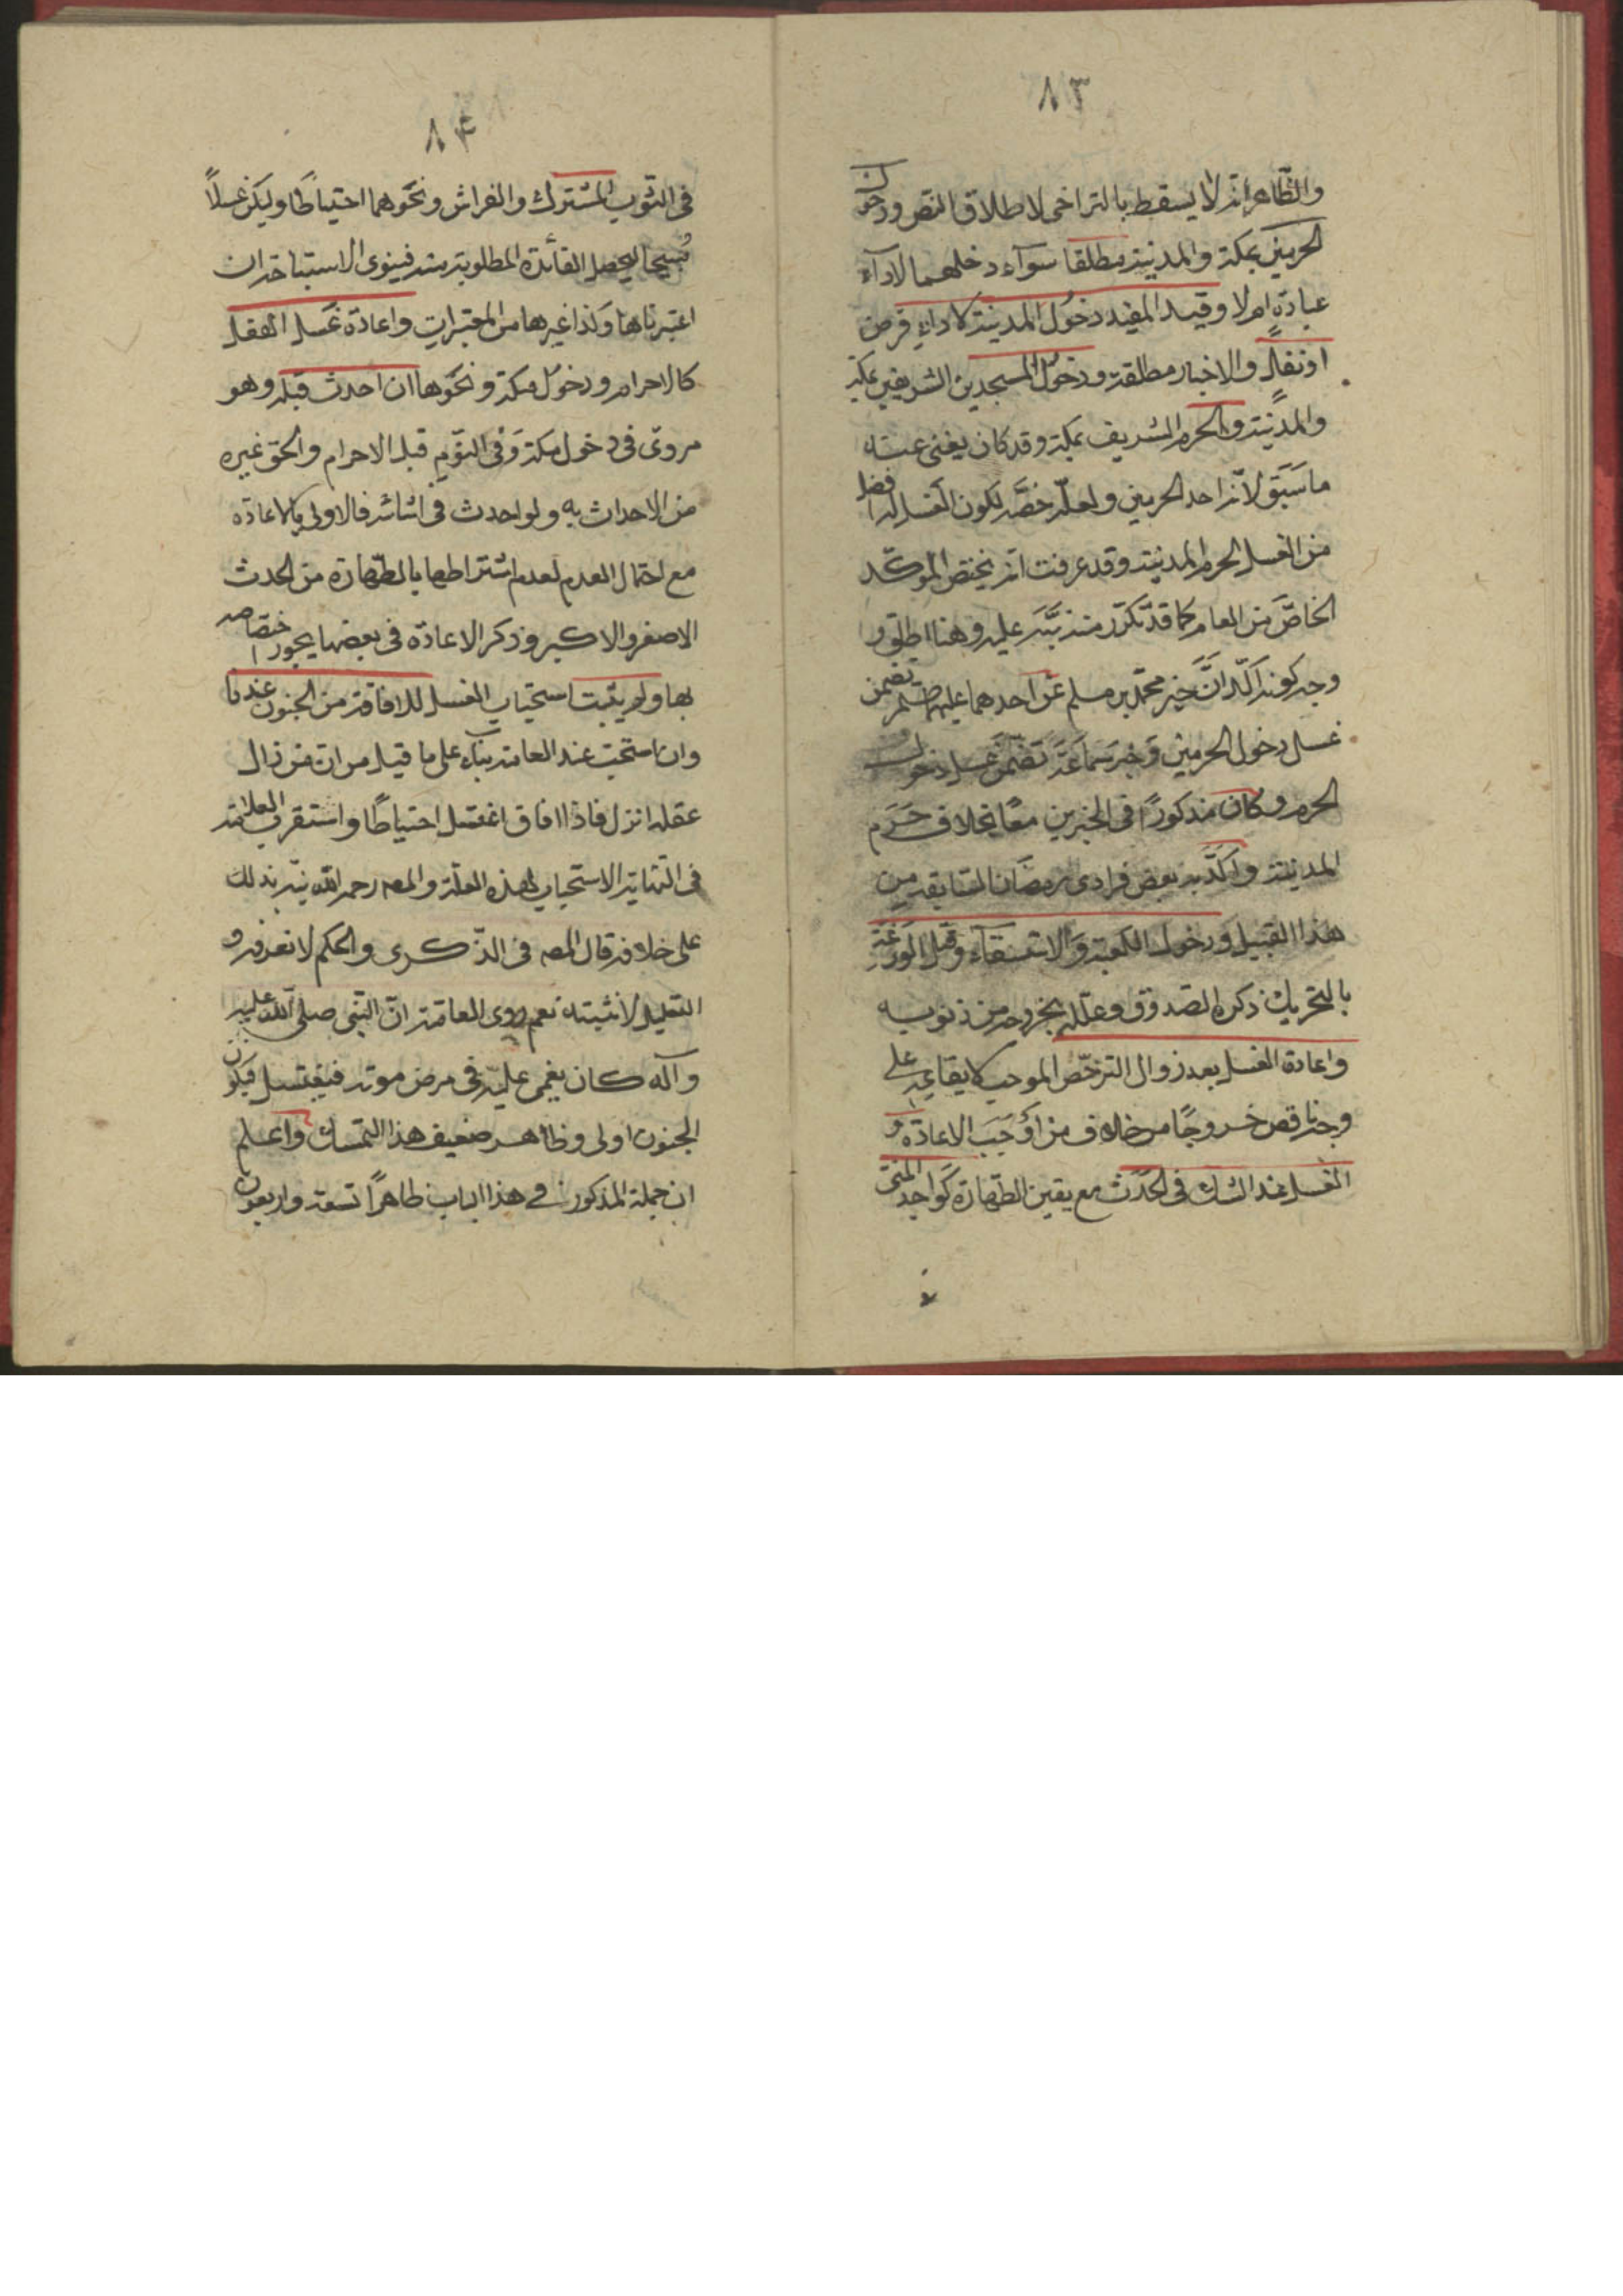 ٨٣
والظاهر انه لا يسقط بالتراخى لاطلاق النص ودخول
الحرمين بمكة والمدينة مطلقا سوآء دخلهما لادآء
عبادة ام لا وقيد المفيد دخول المدينة لاداء فرض
او نفل والاخبار مطلقة ودخول المسجدين الشريفين بمكة
والمدينة والحرم الشريف بمكة وقد كان يغنى عنه
ما سبق لانه احد الحرمين ولعله خصه لكون الغسل له افضل
من الغسل لحرم المدينة وقد عرفت انه يختص المؤكد
الخاص من العام كما قد تكرر منه نبه عليه وهنا اطلق و
وجه كونه اكد ان خبر محمد بن مسلم عن احدهما عليهما تضمن
غسل دخول الحرمين وخبر سماعة تضمن غسل دخول
الحرم وكان مذكورًا فى الخبرين معًا بخلاف حرم
المدينة واكد به بعض فرادى رمضان السابقة من
هذا القبيل ودخول الكعبة والاستسقآء وقتل الوزغة
بالتحريك ذكره الصدوق وعلله بخروجه من ذنوبه
واعادة الغسل بعد زوال الترخص الموجب لايقاعه على
وجه ناقص خروجًا من خلاف من اوجب الاعادة و
الغسل عند الشك فى الحدث مع يقين الطهارة كواجد المنى
٨٤
فى الثوب المشترك والفراش ونحوهما احتياطًا وليكن غسلاً
صحيحا ليحصل الفائدة المطلوبة منه فينوى الاستباحة ان
اعتبرناها وكذا غيرها من المعتبرات واعادة غسل الفعل
كالاحرام ودخول مكة ونحوها ان احدث قبله وهو
مروى فى دخول مكة وفى النوم قبل الاحرام والحق غيره
من الاحداث به ولو احدث فى اثنائه فالاولى الاعادة
مع احتمال العدم لعدم اشتراطها بالطهارة من الحدث
الاصغر والاكبر وذكر الاعادة فى بعضها يجوز اختصاصه
بها ولم يثبت استحباب الغسل للافاقة من الجنون عندنا
وان استحب عند العامة بناء على ما قيل من ان من زال
عقله انزل فاذا افاق اغتسل احتياطًا واستقرب العلامة
فى النهاية الاستحباب لهذه العلة والمص رحمه الله نبه بذلك
على خلافه قال المص فى الذكرى والحكم لا نعرفه و
التعليل لا نثبته نعم روى العامة ان النبى صلى الله عليه
وآله كان يغمى عليه فى مرض موته فيغتسل فيكون
الجنون اولى وظاهر ضعيف هذا التمسك واعلم
ان جملة المذكور فى هذا الباب ظاهرًا تسعة واربعون